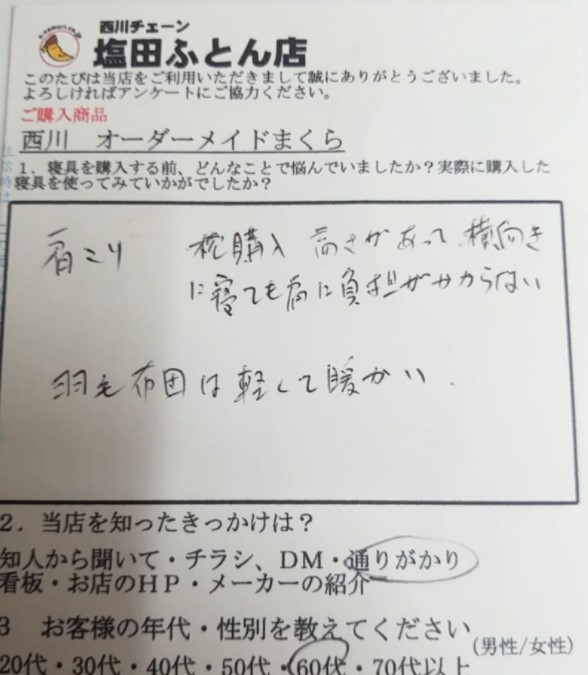 西川チェーン
塩田ふとん店
このたびは当店をご利用いただきまして誠にありがとうございました。
よろしければアンケートにご協力ください。
ご購入商品
西川 オーダーメイドまくら
1．寝具を購入する前、どんなことで悩んでいましたか？実際に購入した
寝具を使ってみていかがでしたか？
肩こり 枕購入 高さがあって 横向き
に寝ても肩に負担がかからない
羽毛布団は軽くて暖かい.
2．当店を知ったきっかけは？
知人から聞いて・チラシ、DM・通りがかり
看板・お店のHP・メーカーの紹介
3 お客様の年代・性別を教えてください
(男性/女性)
20代・30代・40代・50代・60代・70代以上